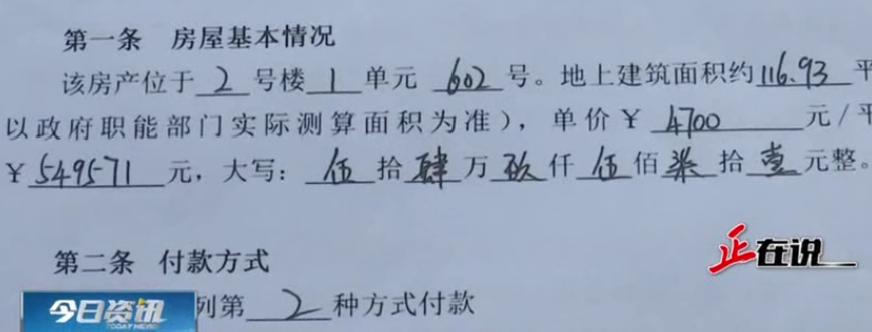 第一条 房屋基本情况
该房产位于 2 号楼 1 单元 602 号。地上建筑面积约 116.93 平
以政府职能部门实际测算面积为准），单价￥ 4700 元/平
￥ 549571 元，大写： 伍 拾 肆 万 玖 仟 伍 佰 柒 拾 壹 元整。
第二条 付款方式
正在说
列第 2 种方式付款
今日资讯
TODAY NEWS